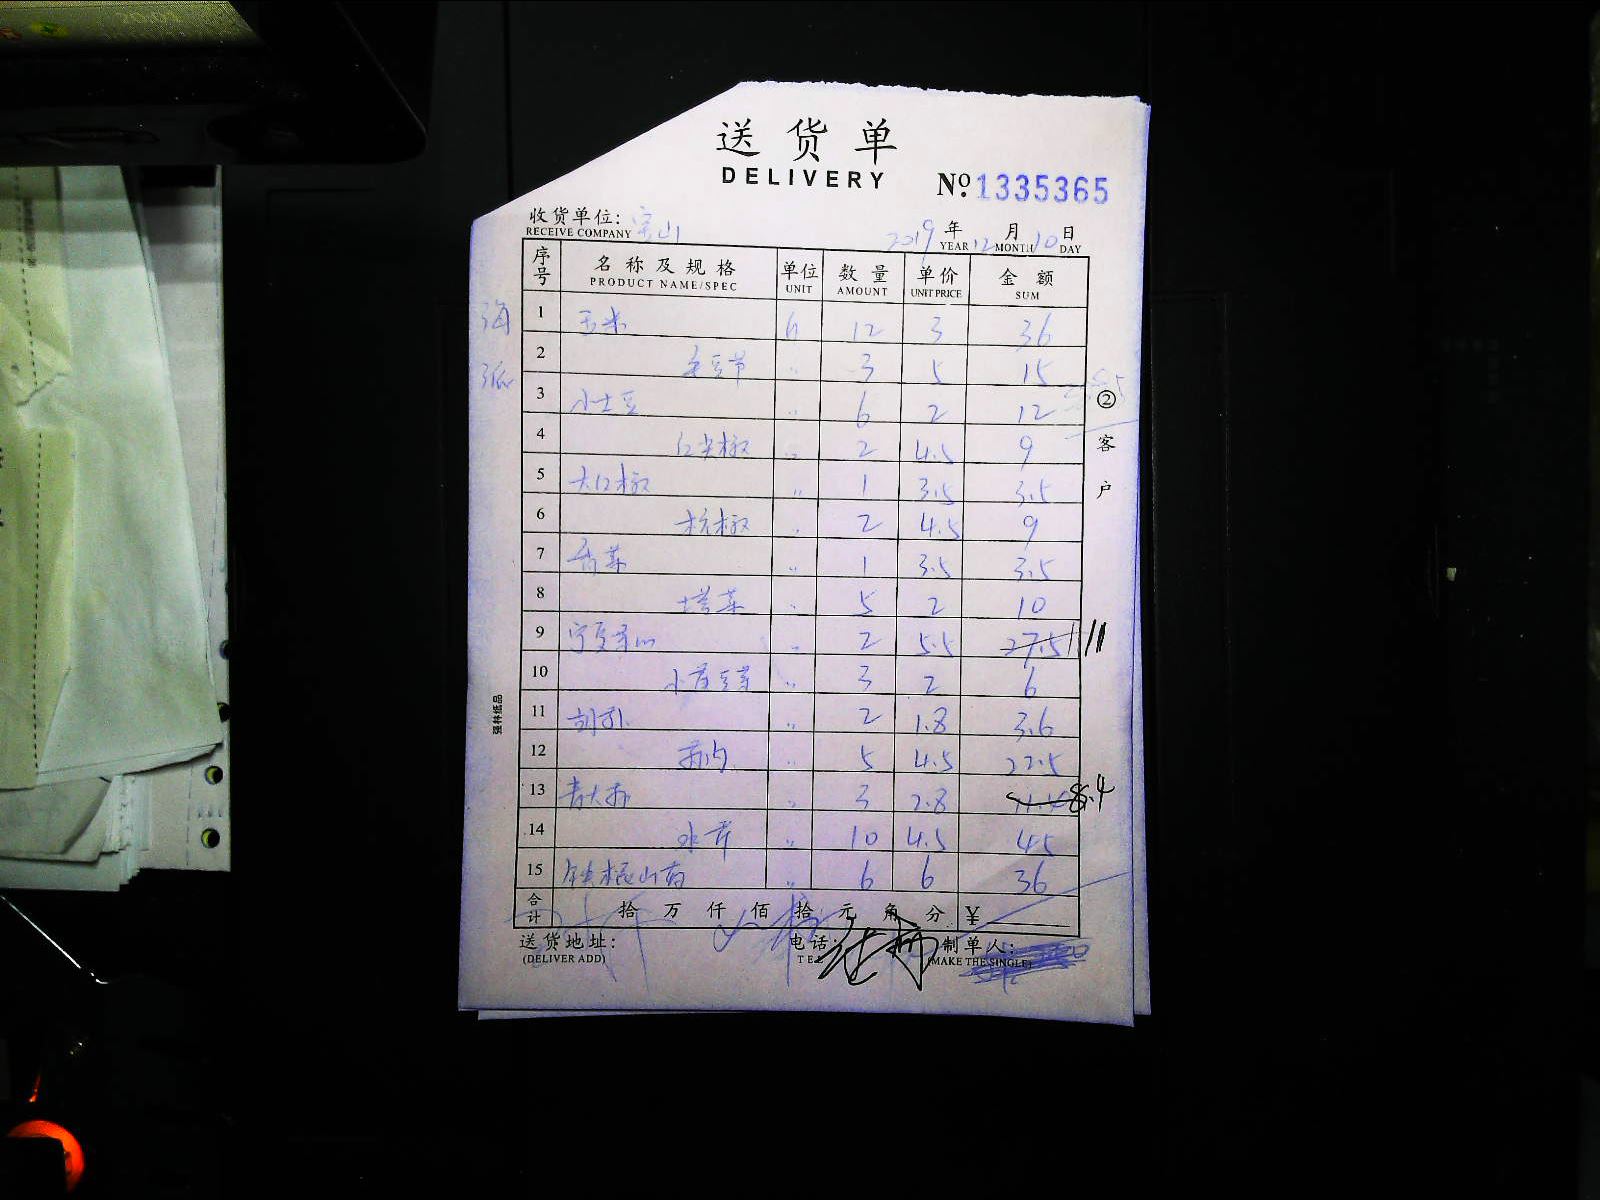 送货单
DELIVERY
№ 1335365
收货单位: 宝山 2019年12月10日
RECEIVE COMPANY YEAR MONTH DAY
序号 名称及规格 单位 数量 单价 金额
PRODUCT NAME/SPEC UNIT AMOUNT UNIT PRICE SUM
1 玉米 12 3 36
2 3 5 15
3 小土豆 〃 6 2 12
4 红尖椒 〃 2 4.5 9
5 大红椒 〃 1 3.5 3.5
6 杭椒 〃 2 4.5 9
7 香菜 〃 1 3.5 3.5
8 塔菜 〃 5 2 10
9 宁夏菜心 〃 2 5.5 27.5 11
10 小黄豆芽 〃 3 2 6
11 〃 2 1.8 3.6
12 〃 5 4.5 22.5
13 青大 〃 3 2.8 8.4
14 水芹 〃 10 4.5 45
15 铁棍山药 〃 6 6 36
合计 拾万仟佰拾元角分 ¥
送货地址: 电话: 制单人:
(DELIVER ADD) TEL (MAKE THE SINGLE)
②客户
强林纸品